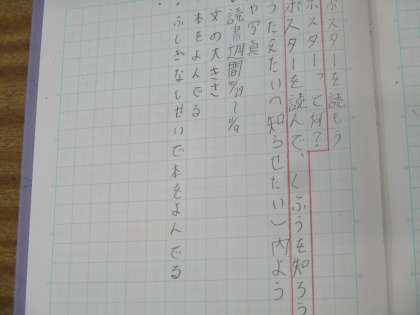 ポスターを読もう
ポスターって何?
ポスターを読んで、くふうを知ろう
うったえたい(知らせたい)内よう
や写真
読書週間10/27～11/9
文の大きさ
本をよんでる
・ふしぎなしせいで本をよんでる